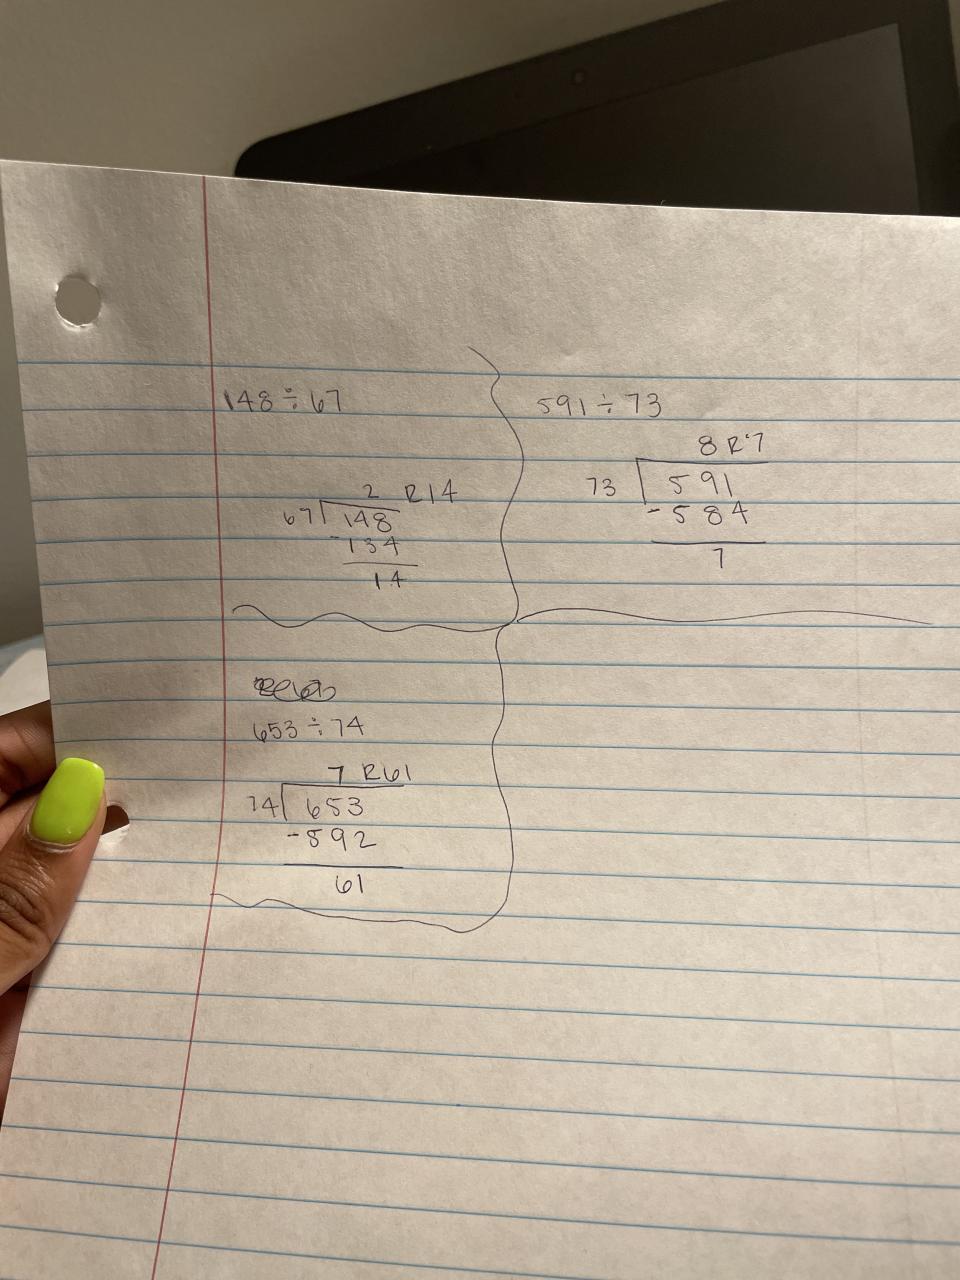 148 ÷ 67
2 R14
67 148
-134
14
591 ÷ 73
8 R 7
73 591
-584
7
653 ÷ 74
7 R61
74 653
-592
61